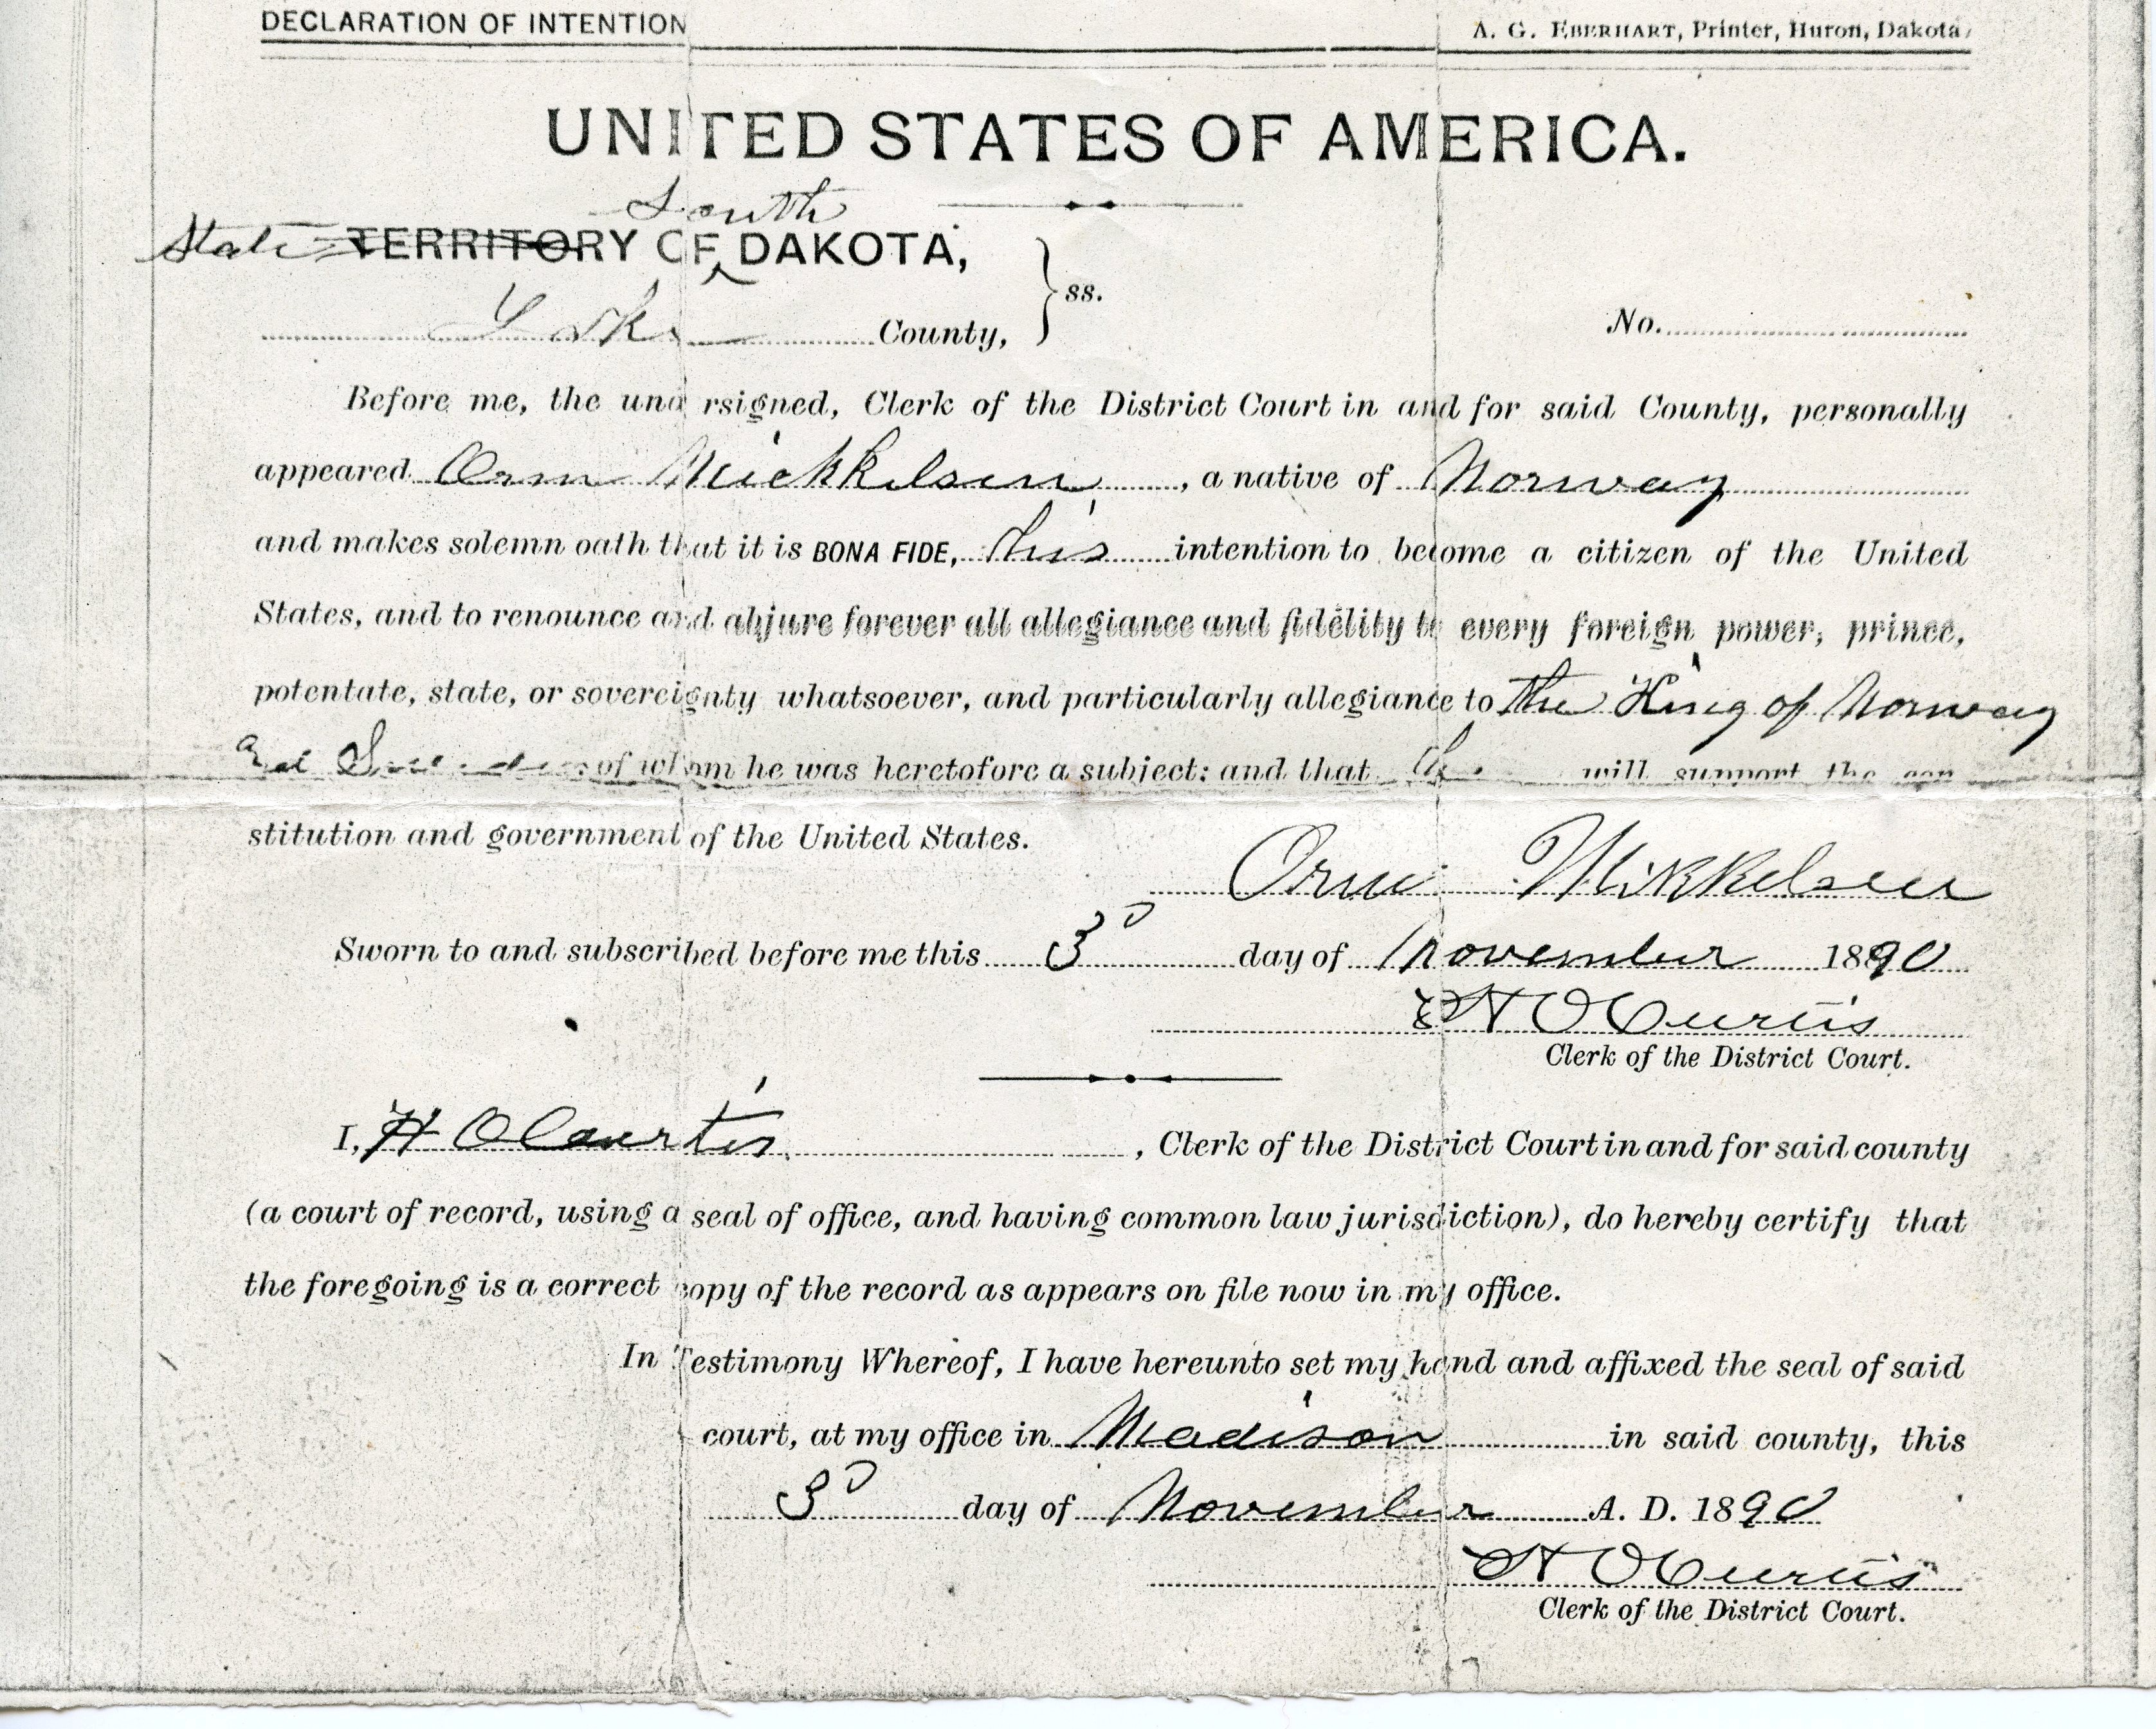 DECLARATION OF INTENTION A. G. EBERHART, Printer, Huron, Dakota
UNITED STATES OF AMERICA.
South
State TERRITORY OF DAKOTA,
Lake County, ss. No.
Before me, the undersigned, Clerk of the District Court in and for said County, personally
appeared Orm Mickkelsen, a native of Norway
and makes solemn oath that it is BONA FIDE, his intention to become a citizen of the United
States, and to renounce and abjure forever all allegiance and fidelity to every foreign power, prince,
potentate, state, or sovereignty whatsoever, and particularly allegiance to the King of Norway
and Sweden of whom he was heretofore a subject: and that he will support the con
stitution and government of the United States.
Orm Mikkelsen
Sworn to and subscribed before me this 3D day of November 1890
H O Curtis
Clerk of the District Court.
I, H O Curtis, Clerk of the District Court in and for said county
(a court of record, using a seal of office, and having common law jurisdiction), do hereby certify that
the foregoing is a correct copy of the record as appears on file now in my office.
In Testimony Whereof, I have hereunto set my hand and affixed the seal of said
court, at my office in Madison in said county, this
3D day of November A. D. 1890
H O Curtis
Clerk of the District Court.